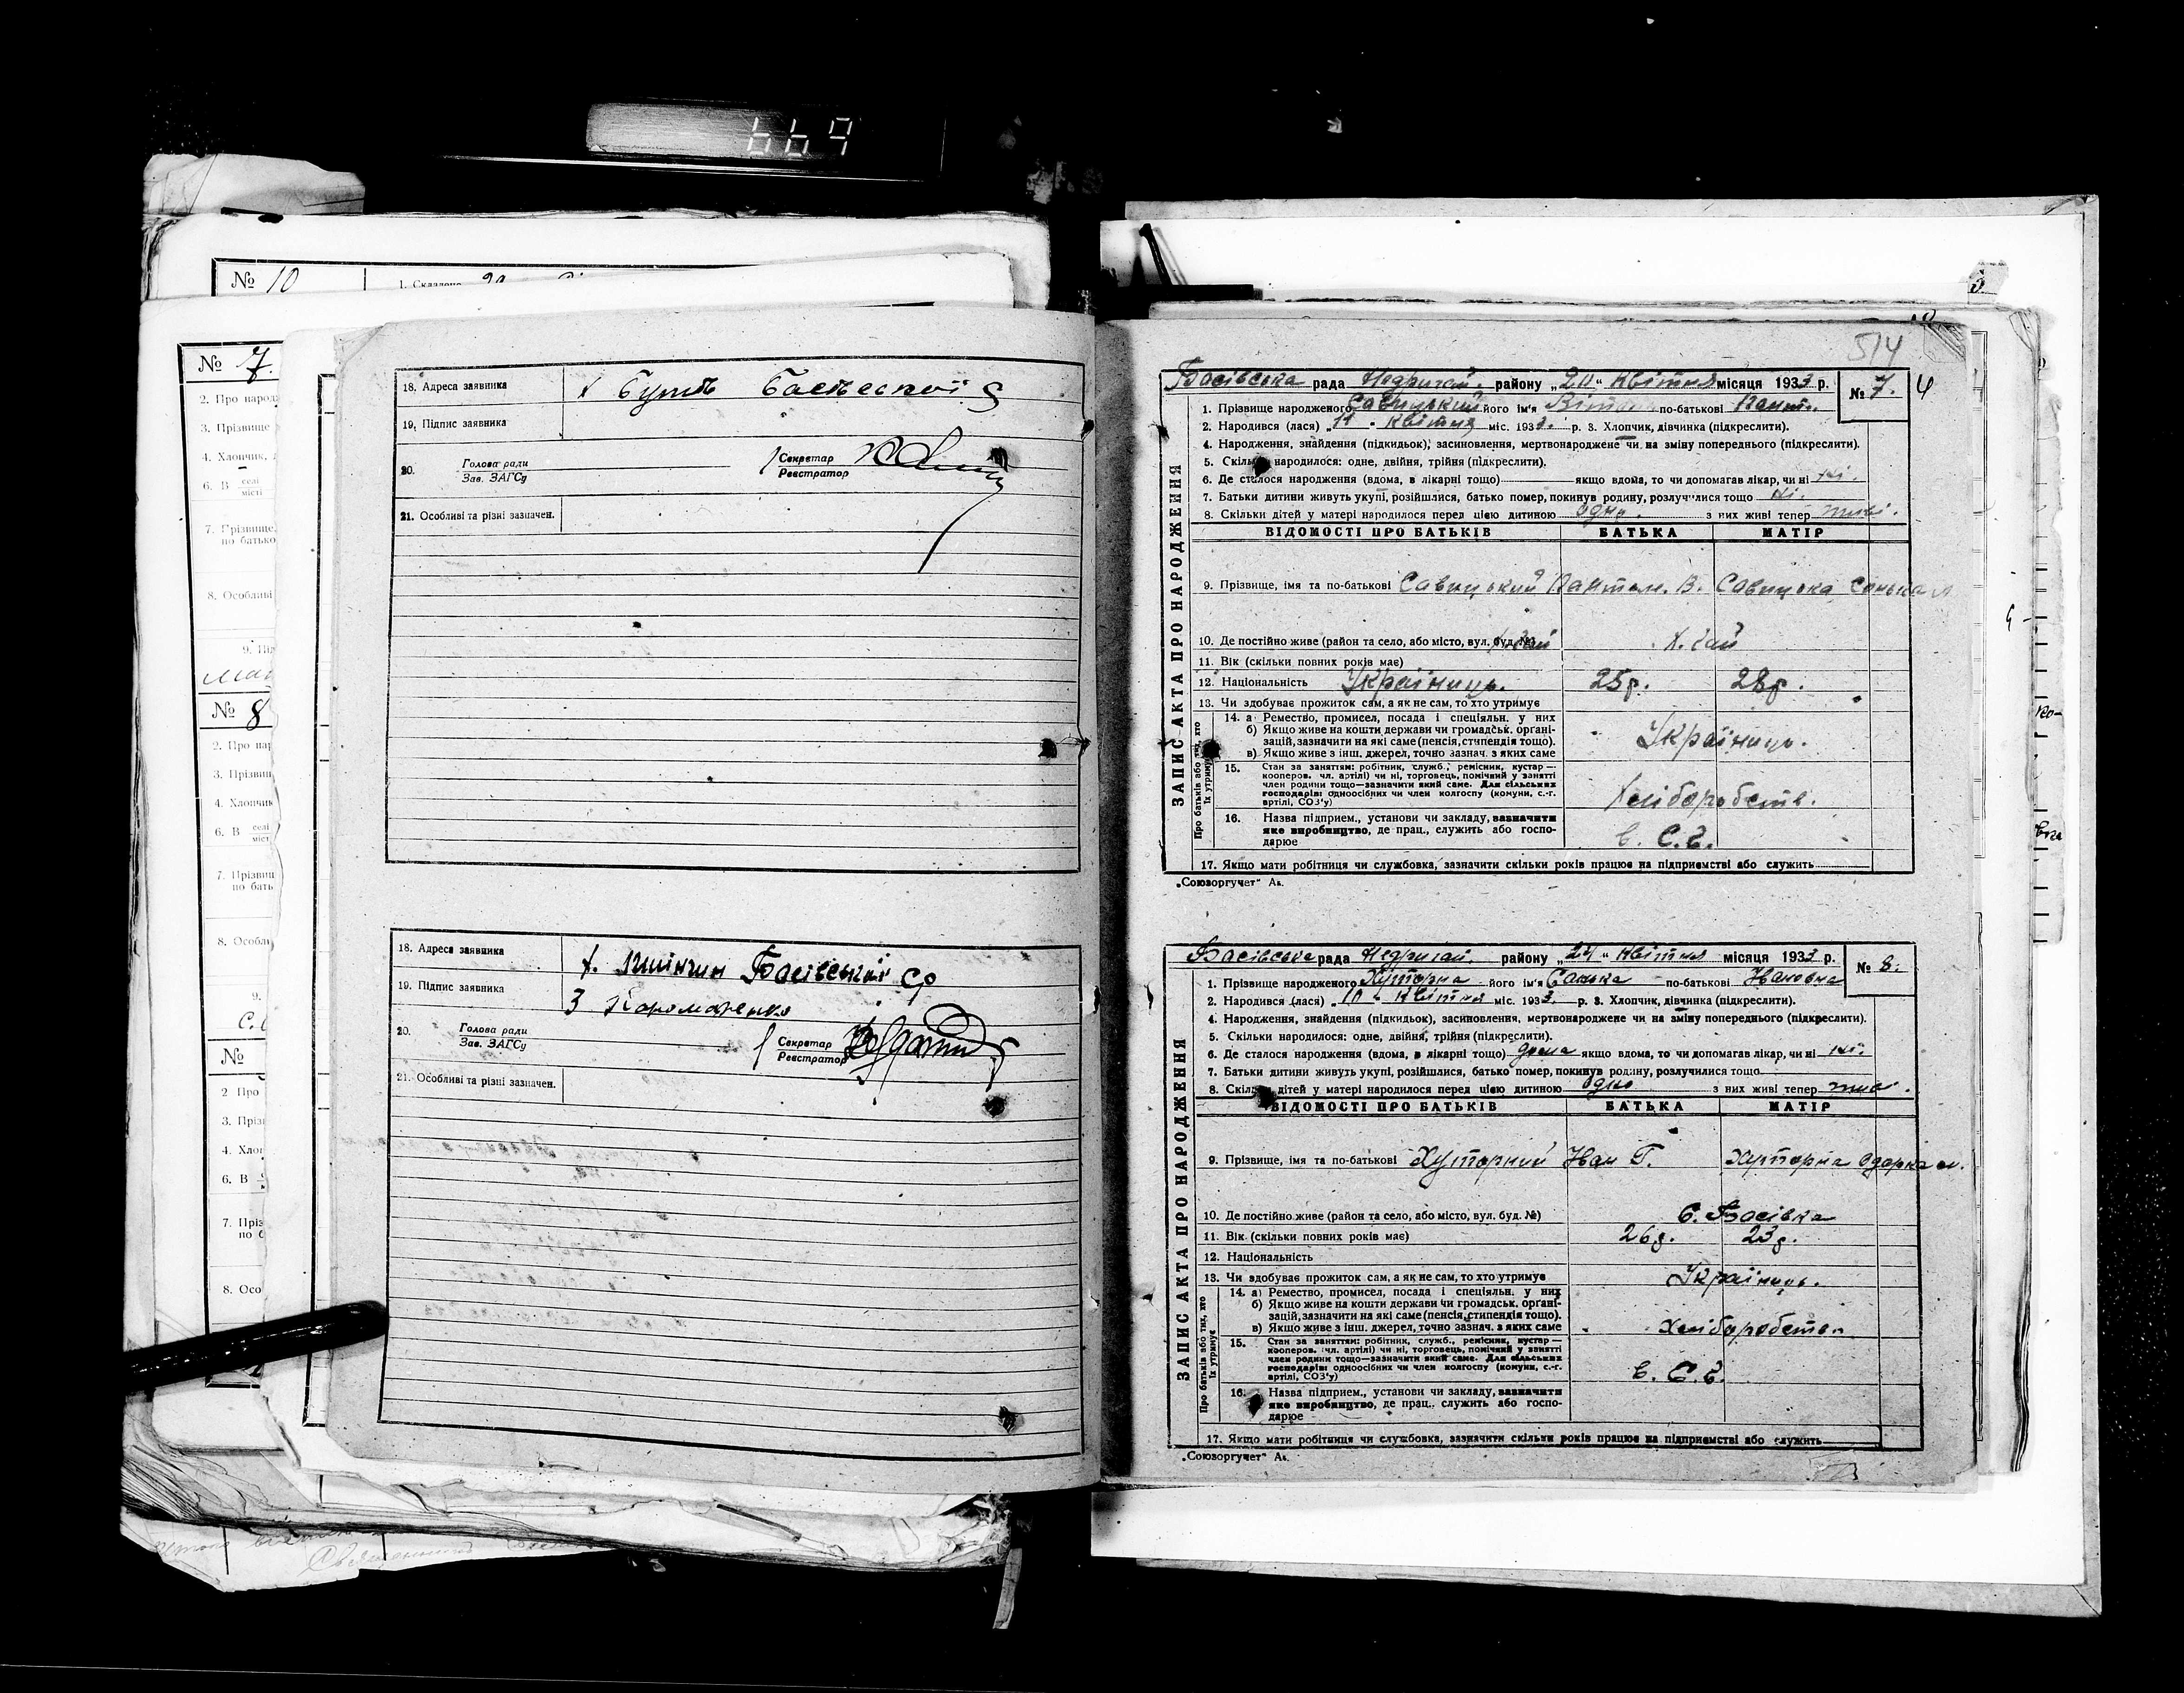 669
№ 10
1. Складено
№ 7.
2. Про народ
3. Прізвище
4. Хлопчик,
6. В селі місті
7. Прізвище,
по батько
8. Особливі
№ 8
2. Про нар
3. Прізвищ
4. Хлопчик
6. В селі міст
7. Прізвищ
по бать
8. Особли
9.
№
2 Про
3. Пріз
4. Хлоп
6. В
7. Пріз
по б
8. Осо
18. Адреса заявника
19. Підпис заявника
20. Голова ради
Зав. ЗАГСу
Секретар
Реєстратор
21. Особливі та різні зазначен.
18. Адреса заявника Басівської с/р
19. Підпис заявника
20. Голова ради
Зав. ЗАГСу
Секретар
Реєстратор
21. Особливі та різні зазначен.
514
Басівська рада Недригай. району „20“ квітня місяця 1933 р.
№ 7. 4
ЗАПИС АКТА ПРО НАРОДЖЕННЯ
1. Прізвище народженого Савицький його ім'я по-батькові Пант.
2. Народився (лася) „ квітня міс. 193 р. 3. Хлопчик, дівчинка (підкреслити).
4. Народження, знайдення (підкидьок), засиновлення, мертвонароджене чи на зміну попереднього (підкреслити).
5. Скільки народилося: одне, двійня, трійня (підкреслити).
6. Де сталося народження (вдома, в лікарні тощо) якщо вдома, то чи допомагав лікар, чи ні ні.
7. Батьки дитини живуть укупі, розійшлися, батько помер, покинув родину, розлучилися тощо ні.
8. Скільки дітей у матері народилося перед цією дитиною одно. з них живі тепер
ВІДОМОСТІ ПРО БАТЬКІВ БАТЬКА МАТІР
9. Прізвище, імя та по-батькові Савицький Пантел. В. Савицька Сонька
10. Де постійно живе (район та село, або місто, вул. буд. №) х. Гай
11. Вік (скільки повних років має)
12. Національність Українець. 25р. 28р.
13. Чи здобуває прожиток сам, а як не сам, то хто утримує
Про батьків або тих, хто їх утримує
14. а Ремество, промисел, посада і спеціяльн. у них
б) Якщо живе на кошти держави чи громадськ. органі-
зацій, зазначити на які саме (пенсія, стипендія тощо).
в) Якщо живе з інш. джерел, точно зазнач. з яких саме
Українець.
15. Стан за заняттям: робітник, служб., ремісник, кустар —
кооперов. чл. артілі) чи ні, торговець, помічний у занятті
член родини тощо—зазначити який саме. Для сільських
господарів: одноосібних чи член колгоспу (комуни, с.-г.
артілі, СОЗ'у)
Хліборобств.
16. Назва підприєм., установи чи закладу, зазначити
яке виробництво, де прац., служить або госпо-
дарює
17. Якщо мати робітниця чи службовка, зазначити скільки років працює на підприємстві або служить
„Союзоргучет“ Ак.
Басівська рада Недригай. району „24“ квітня місяця 1933 р.
№ 8.
ЗАПИС АКТА ПРО НАРОДЖЕННЯ
1. Прізвище народженого Хуторна його ім'я Санька по-батькові Івановна
2. Народився (лася) „10 - квітня міс. 1933. р. 3. Хлопчик, дівчинка (підкреслити).
4. Народження, знайдення (підкидьок), засиновлення, мертвонароджене чи на зміну попереднього (підкреслити).
5. Скільки народилося: одне, двійня, трійня (підкреслити).
6. Де сталося народження (вдома, в лікарні тощо) дома якщо вдома, то чи допомагав лікар, чи ні ні.
7. Батьки дитини живуть укупі, розійшлися, батько помер, покинув родину, розлучилися тощо
8. Скільки дітей у матері народилося перед цією дитиною одно з них живі тепер
ВІДОМОСТІ ПРО БАТЬКІВ БАТЬКА МАТІР
9. Прізвище, імя та по-батькові Хуторний Іван Г. Хуторна Одарка
10. Де постійно живе (район та село, або місто, вул. буд. №) с. Басівка
11. Вік (скільки повних років має) 26р. 23р.
12. Національність
13. Чи здобуває прожиток сам, а як не сам, то хто утримує Українець.
Про батьків або тих, хто їх утримує
14. а) Ремество, промисел, посада і спеціяльн. у них
б) Якщо живе на кошти держави чи громадськ. органі-
зацій, зазначити на які саме (пенсія, стипендія тощо).
в) Якщо живе з інш. джерел, точно зазнач. з яких саме
Хліборобств.
15. Стан за заняттям: робітник, служб., ремісник, кустар —
кооперов. чл. артілі) чи ні, торговець, помічний у занятті
член родини тощо—зазначити який саме. Для сільських
господарів: одноосібних чи член колгоспу (комуни, с.-г.
артілі, СОЗ'у)
16. Назва підприєм., установи чи закладу, зазначити
яке виробництво, де прац., служить або госпо-
дарює
17. Якщо мати робітниця чи службовка, зазначити скільки років працює на підприємстві або служить
„Союзоргучет“ Ак.